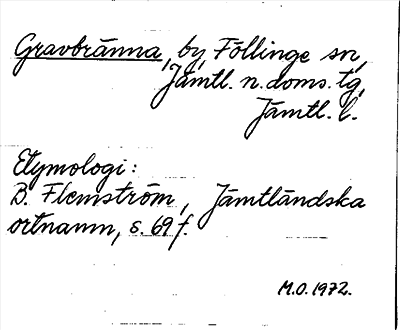 Gravbränna, by, Föllinge sn,
Jämtl. n. doms. tg,
Jämtl. l.
Etymologi:
B. Flemström, Jämtländska
ortnamn, s. 69 f.
M.O. 1972.